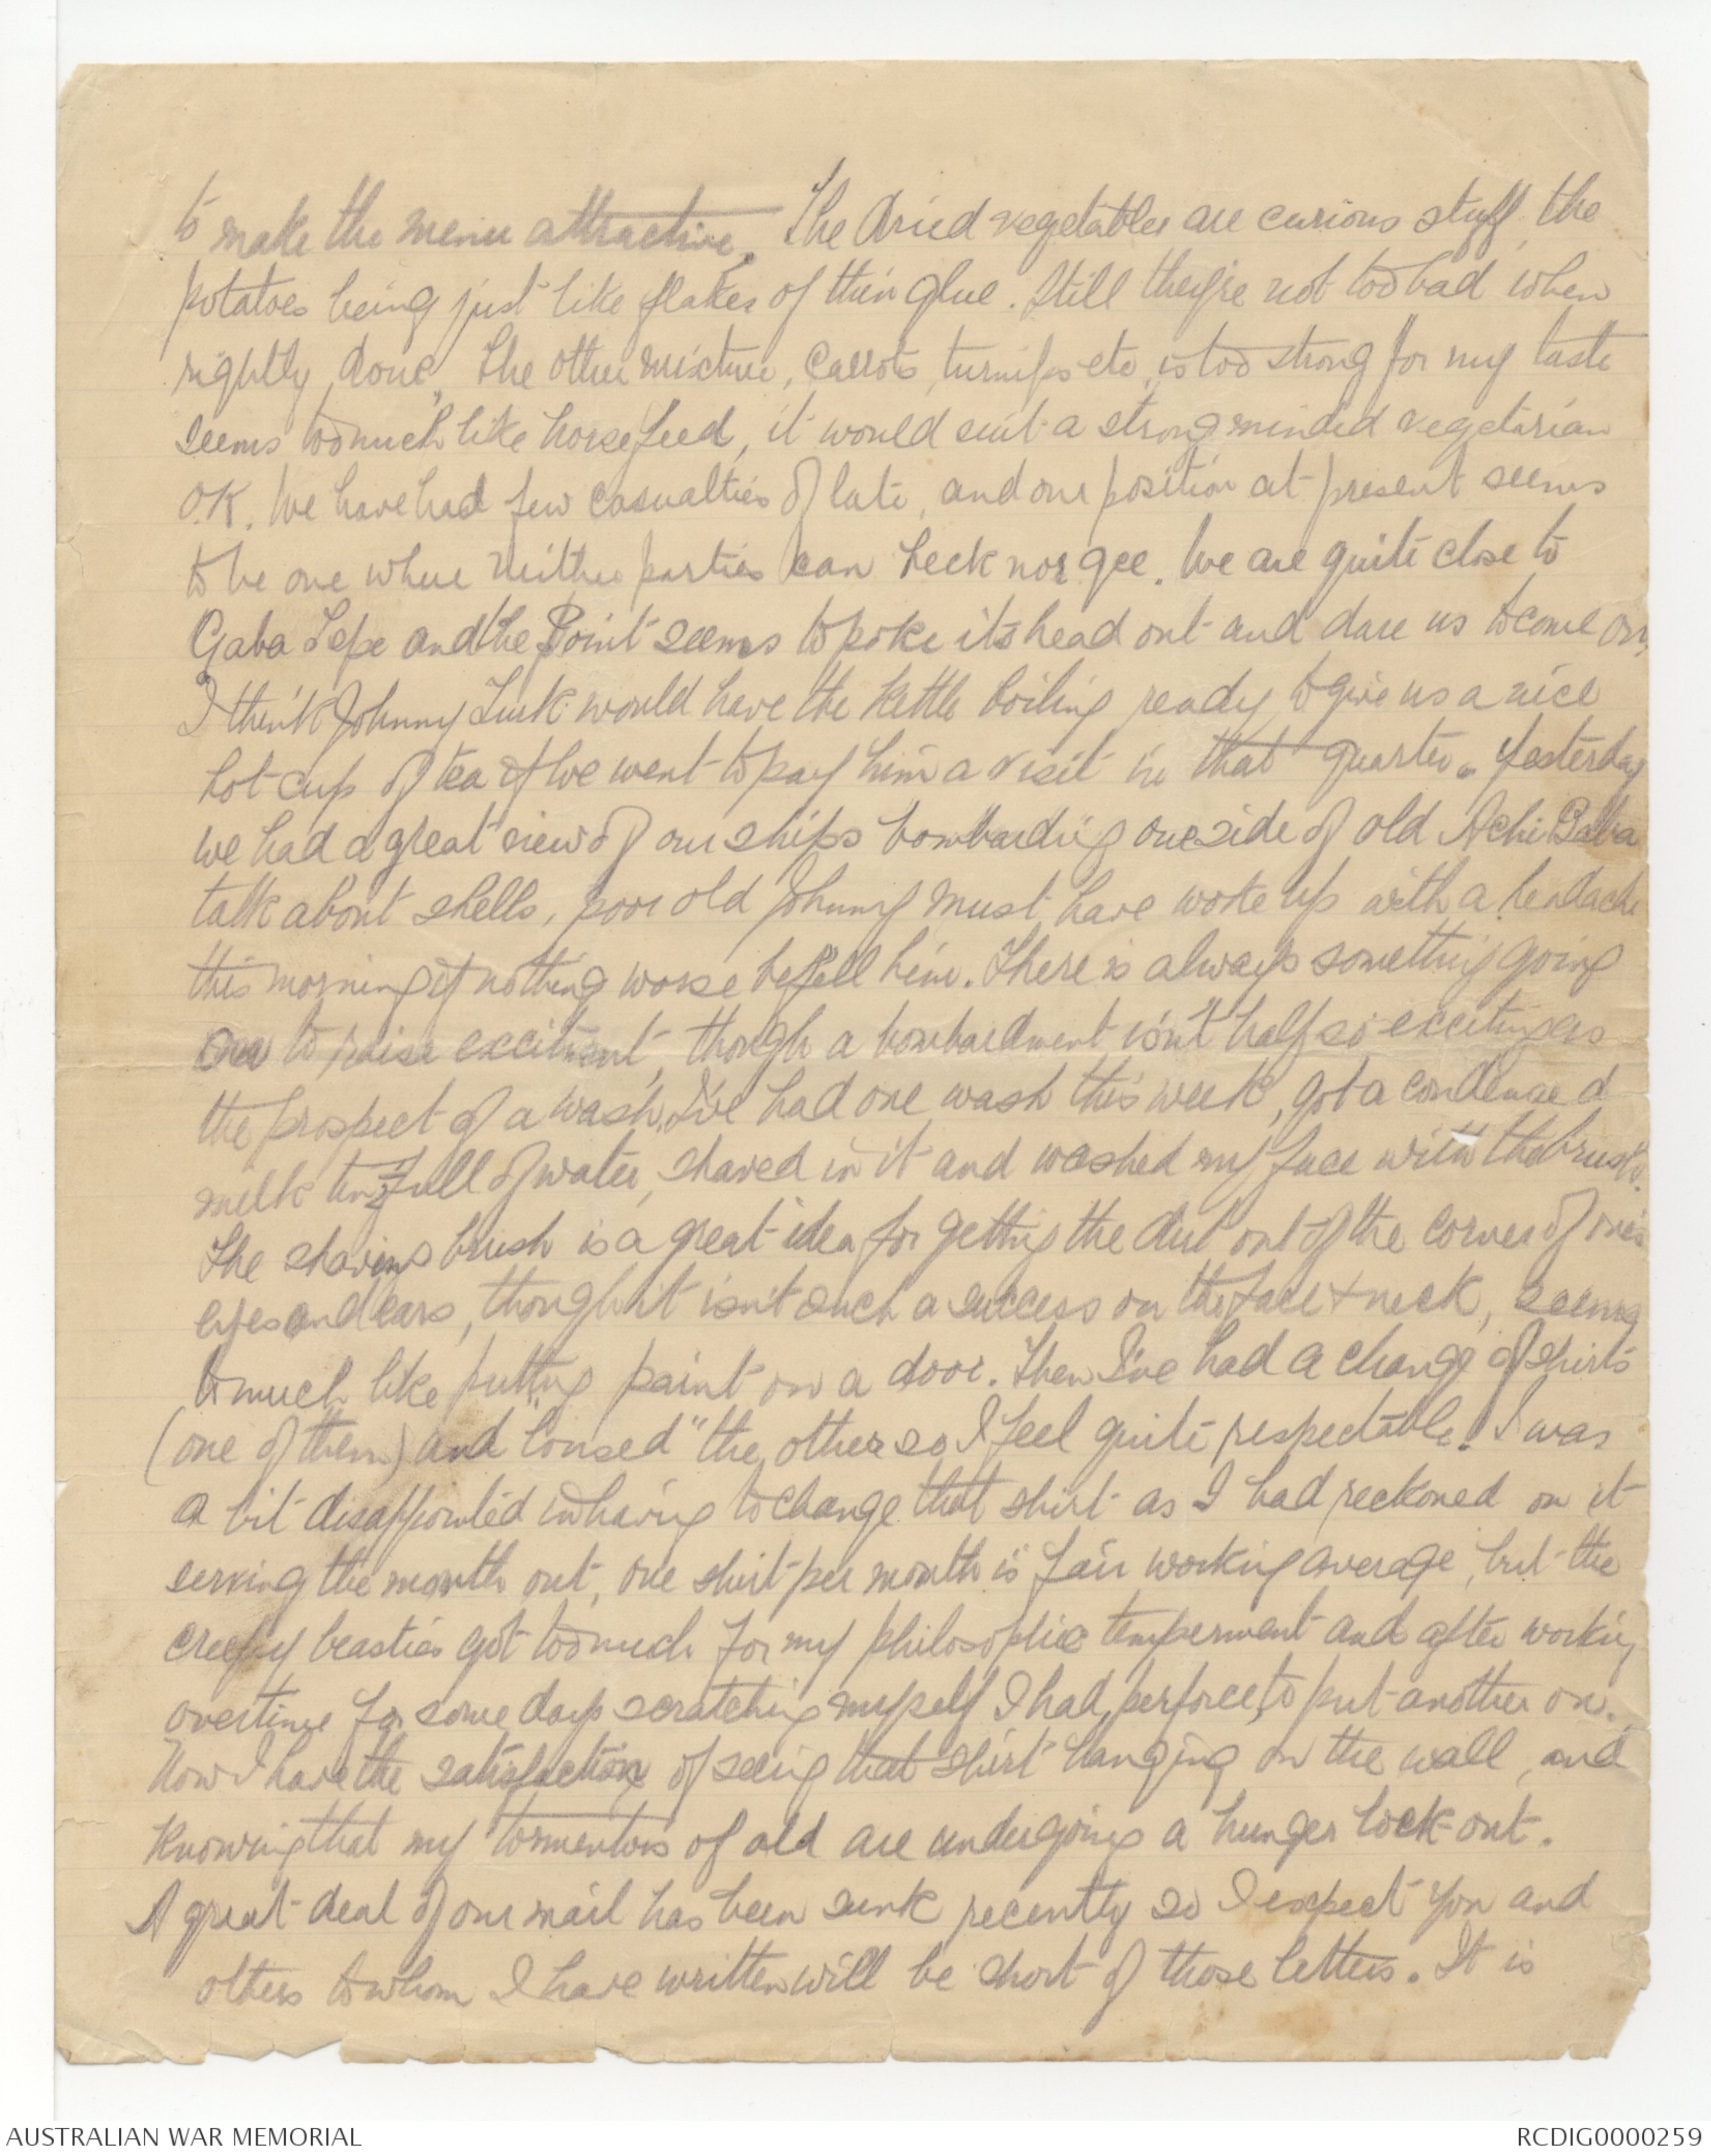 to make the menu attractive. The dried vegetables are curious stuff, the
potatoes being just like flakes of thin glue. Still they're not too bad when
rightly done. The other mixture, carrots, turnips etc, is too strong for my taste
seems too much like horsefeed, it would suit a strongminded vegetarian
O.K. We have had few casualties of late, and our position at present seems
to be one where neither parties can heck nor gee. We are quite close to
Gaba Tepe and the Point seems to poke its head out and dare us to come on,
I think Johnny Turk would have the kettle boiling ready to give us a nice
hot cup of tea if we went to pay him a visit in that quarter. Yesterday
we had a great view of our ships bombarding one side of old Achi Baba
talk about shells, poor old Johnny must have woke up with a headache
this morning if nothing worse befell him. There is always something going
on to raise excitment, though a bombardment isn't half so exciting as
the prospect of a wash. I've had one wash this week, got a condensed
milk tin ½ full of water, shaved in it and washed my face with the brush.
The shaving brush is a great idea for getting the dirt out of the corner of one's
eyes and ears, though it isn't such a success on the face & neck, seems
to much like putting paint on a door. Then I've had a change of shirts
(one of them) and "loused" the other so I feel quite respectable. I was
a bit disappointed in having to change that shirt as I had reckoned on it
serving the month out, one shirt per month is fair working average, but the
creepy beasties got too much for my philosophic temperment and after working
overtime for some days scratching myself I had, perforce, to put another on.
Now I have the satisfaction of seeing that shirt hanging on the wall, and
knowing that my tormentors of old are undergoing a hunger lock-out.
A great deal of our mail has been sunk recently so I expect you and
others to whom I have written will be short of those letters. It is
AUSTRALIAN WAR MEMORIAL
RCDIG0000259